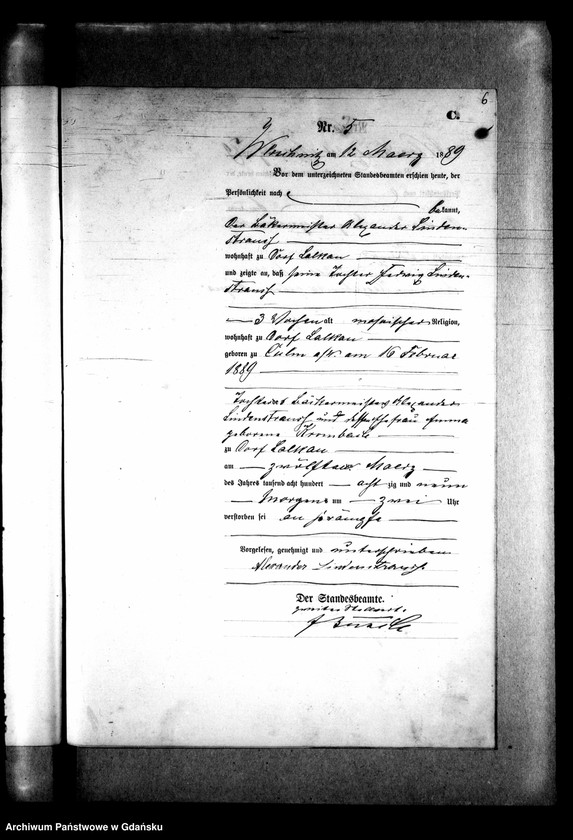 6
C.
Nr. 5
am 12 Maerz 1889
Vor dem unterzeichneten Standesbeamten erschien heute, der
Persönlichkeit nach
bekannt,
Der Bäkermeister Alexander Linden-
strauß
wohnhaft zu Dorf Lalkau
und zeigte an, daß seine Tochter Hedwig Linden-
strauß
3 Wochen alt mosaischer Religion,
wohnhaft zu Dorf Lalkau
geboren zu Culm a/W. am 16 Februar
1889
Tochter des Bäckermeisters Alexander
Lindenstrauß und dessen Ehefrau Emma
geborene Krombach
zu Dorf Lalkau
am zwölften Maerz
des Jahres tausend acht hundert acht zig und neun
Morgens um zwei Uhr
verstorben sei an Krämpfe
Vorgelesen, genehmigt und unterschrieben
Alexander Lindenstrauß.
Der Standesbeamte.
Archiwum Państwowe w Gdańsku